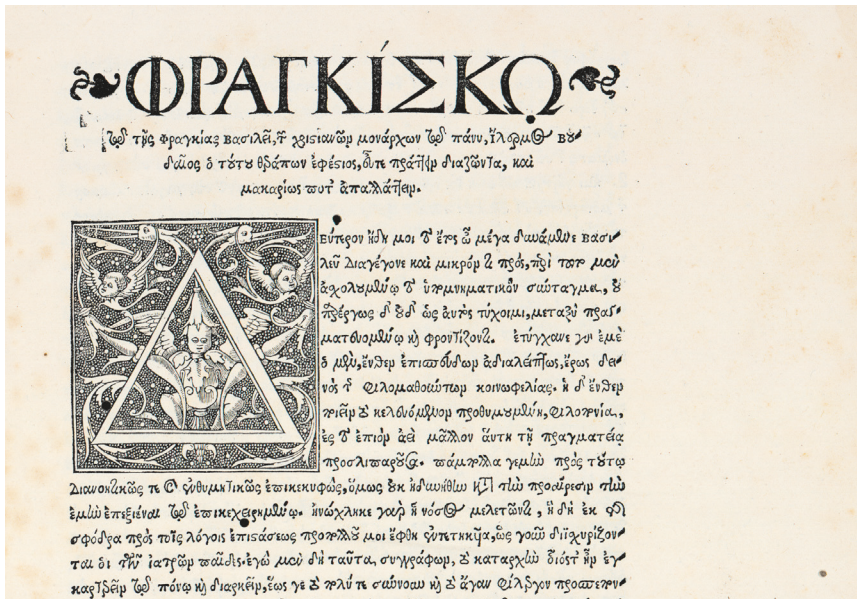 ΦΡΑΓΚΊΣΚΩ
τῷ τῆς Φραγκίας βασιλεῖ, τῶν χριστιανῶν μονάρχων τῷ πάνυ, Βου-
δαῖος ὁ τούτου θεράπων ἐφέστιος, εὖτε πράττειν διαζῶντα, καὶ
μακαρίως ποτ' ἀπαλλάττειν.
Δεύτερον ἤδη μοι τὸ ἔτος ὦ μέγα δυνάμενε βασι-
λεῦ διαγέγονε καὶ μικρόν τι πρός, περὶ
ἀσχολουμένῳ τὸ ὑπομνηματικὸν σύνταγμα, οὐ
παρέργως δ' οὐδ' ὡς τύχοιμι, μεταξὺ πραγ-
ματευομένῳ καὶ φροντίζοντι. ἐτύγχανε γὰρ ἐμὲ
ὁ μὲν, ἔνθεν ἐπισπεύδων ἀδιαλείπτως, ἔρως δει-
νὸς τῆς φιλομαθούντων κοινωφελίας. ἡ δ' ἔνθεν
ποιεῖν τὸ κελευόμενον προθυμουμένη, φιλοπονία,
ἐς τὸ ἐπιὸν ἀεὶ μᾶλλον αὕτη τῇ πραγματείᾳ
προσλιπαροῦσα. πάμπολλα γεμὴν πρὸς τούτῳ
διανοητικῶς τε καὶ ἐνθυμητικῶς ἐπικεκυφώς, ὅμως οὐκ ἠδυνήθην κατὰ τὴν προαίρεσιν τὴν
ἐμὴν ἐπεξιέναι τῷ ἐπικεχειρημένῳ. ἠνώχληκε γὰρ ἡ νόσος μελετῶντι, ἐκ τῆς
σφόδρα πρὸς τοῖς λόγοις ἐπιστάσεως προπολλοῦ μοι ἔφθη ὡς γοῦν διϊσχυρίζον-
ται οἱ τῶν ἰατρῶν παῖδες. ἐγὼ μὲν δὴ ταῦτα, συγγράφων, ἦν ἐγ-
καρτερεῖν τῷ πόνῳ καὶ διαρκεῖν, ἕως γε σύννουν καὶ τὸ ἄγαν φίλεργον